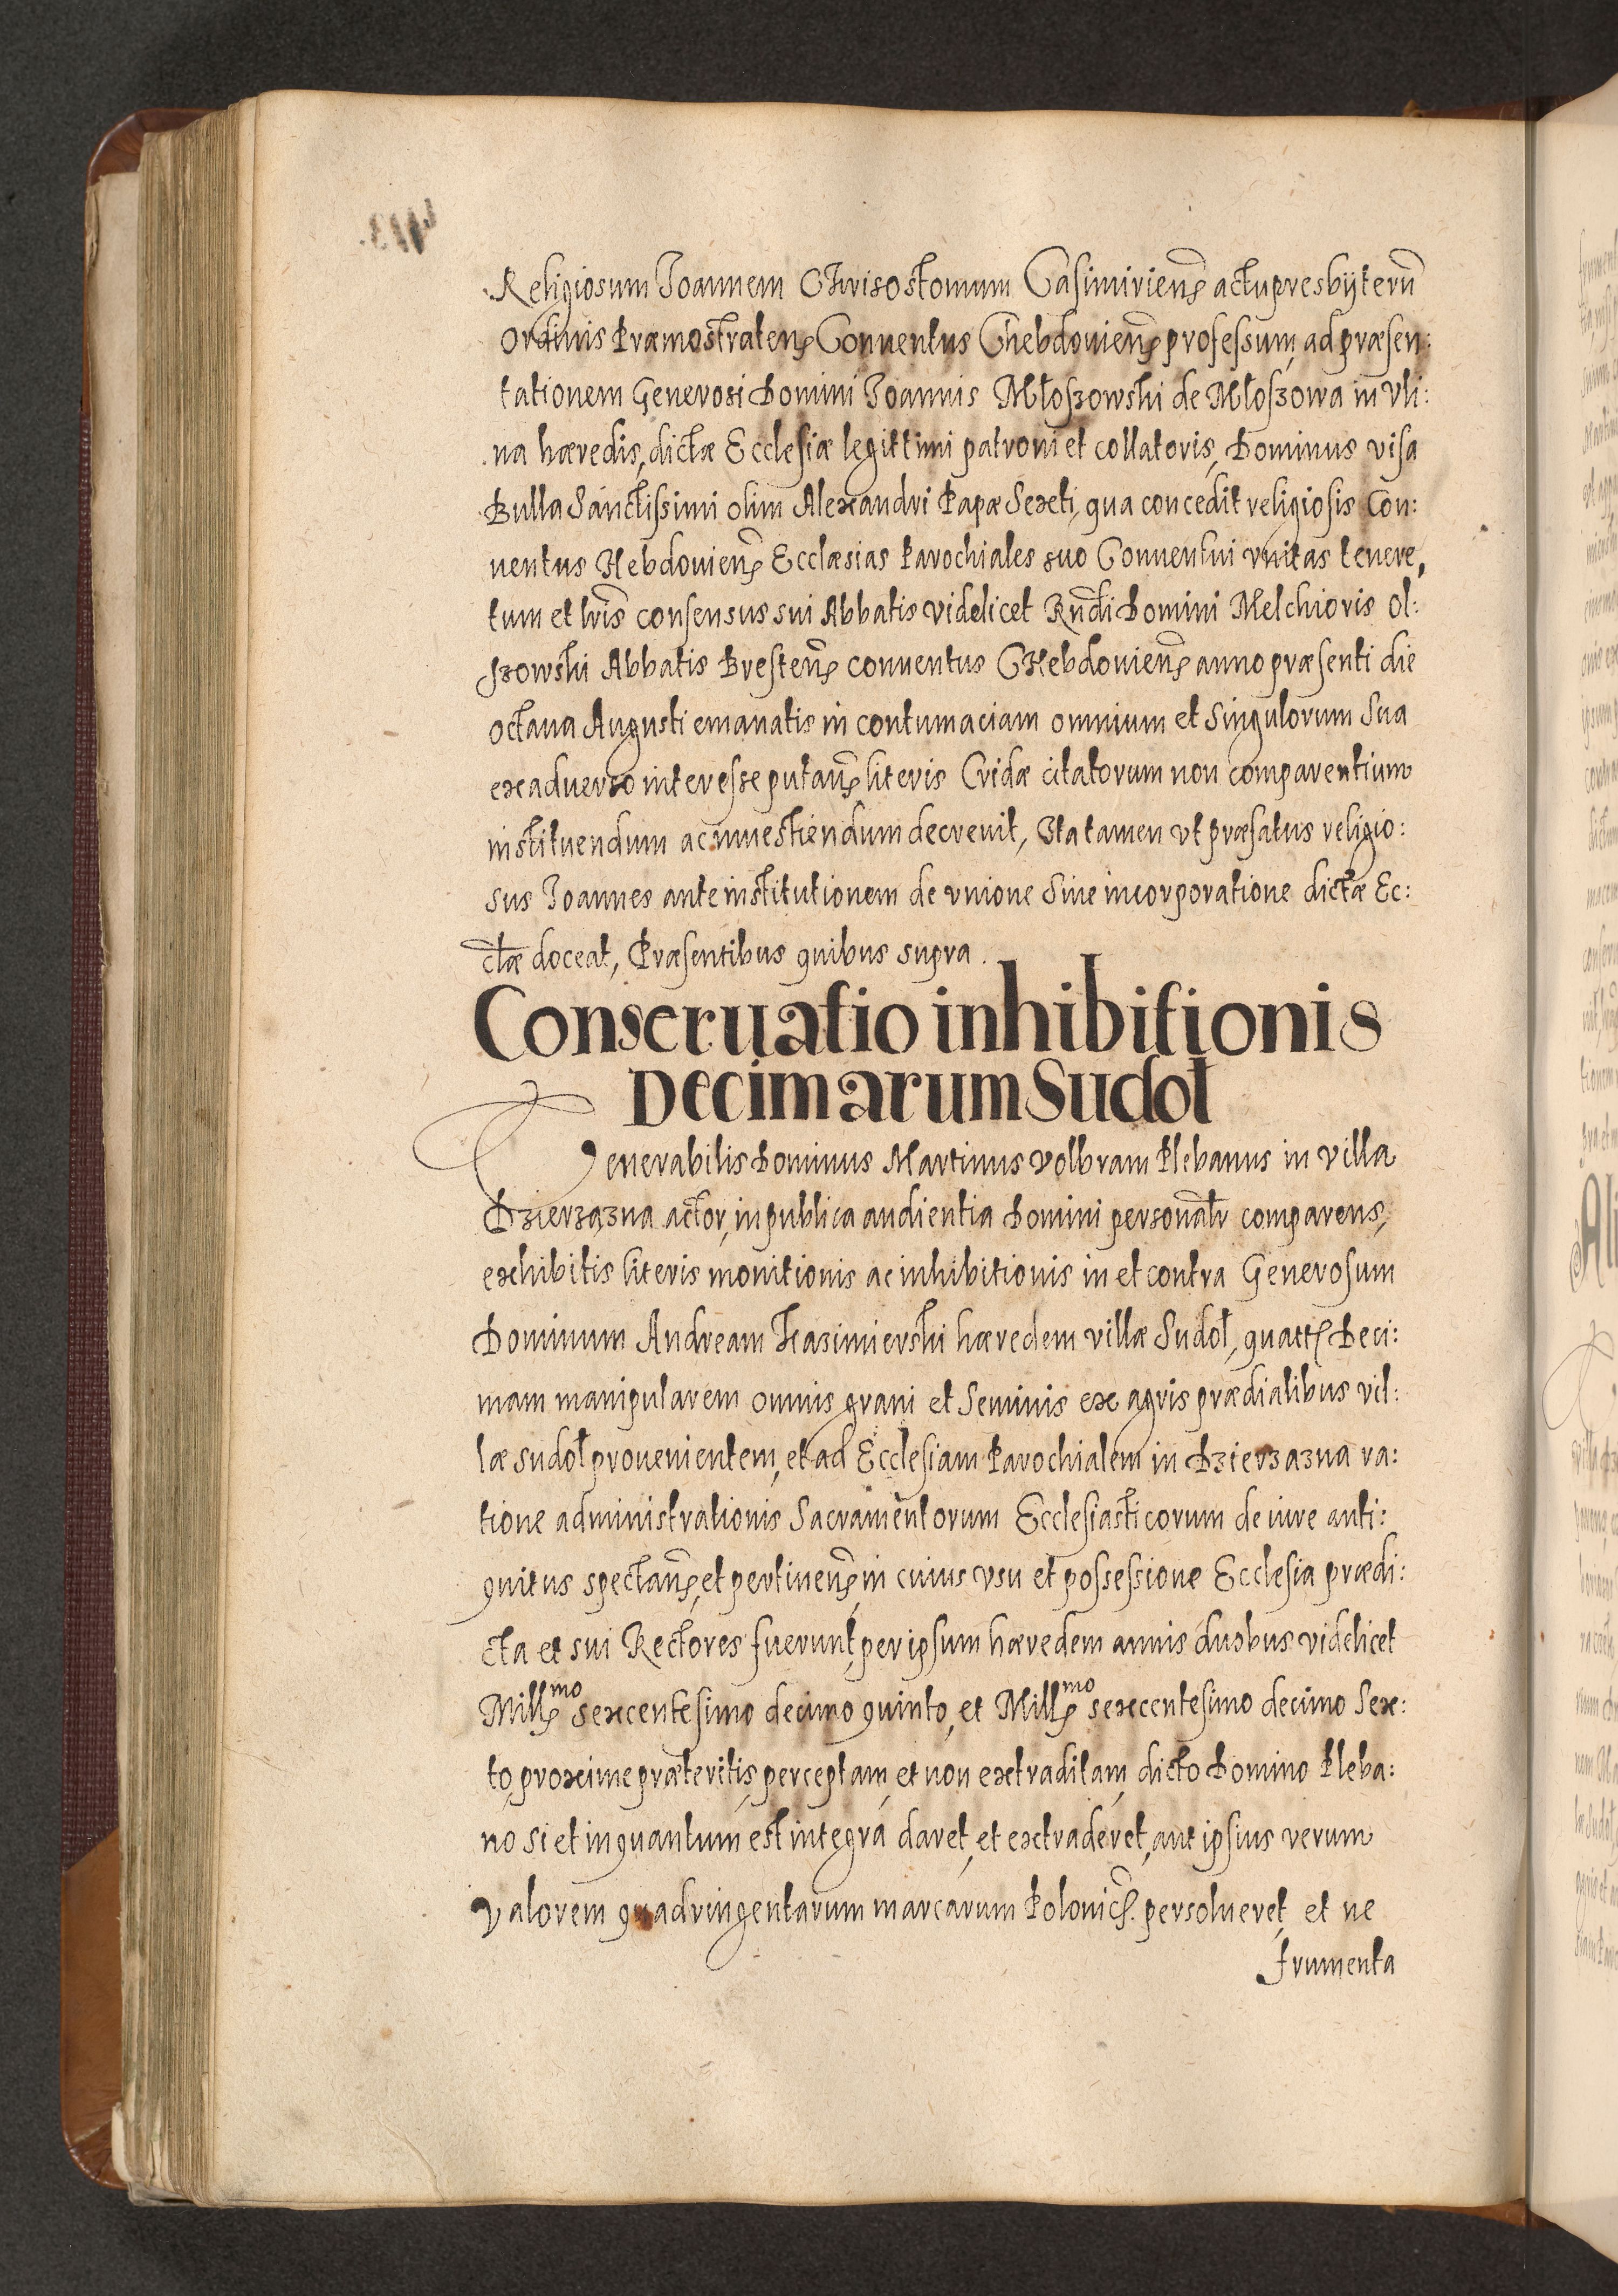 Religiosum Joannem Chrisostomum Casimirien̄ actu presbyterū
ordinis Præmostraten̄ Conuentus Chebdouien̄ professum, ad præsen:
tationem Generosi Domini Joannis Młoszowski de Młoszowa in Vli:
na hæredis, dictæ Ecclesiæ legittimi patroni et collatoris, Dominus visa
Bulla Sanctissimi olim Alexandri Papæ Sexti, qua concedit religiosis Con:
uentus Hebdouien̄ Ecclæsias Parochiales suo Conuentui vnitas tenere,
tum et lr̄is consensus sui Abbatis videlicet Rn̄di Domini Melchioris Ol:
szowski Abbatis Bresten̄ conuentus CHebdouien̄ anno præsenti die
octaua Augusti emanatis in contumaciam omnium et Singulorum Sua
ex aduerso interesse putan̄ literis Cridæ citatorum non comparentium
instituendum ac inuestiendum decreuit, Ita tamen vt præfatus religio:
sus Joannes ante institutionem de vnione Siue incorporatione dictæ Ec:
cl̄æ doceat, Præsentibus quibus supra.
Conseruatio inhibitionis
Decimarum Sudoł
Venerabilis Dominus Martinus Volbram Plebanus in villa
Dzierzązna actor, in publica audientia Domini personal̄r comparens,
exhibitis literis monitionis ac inhibitionis in et contra Generosum
Dominum Andream Kazimierski hæredem villæ Sudoł, quatt̄ Deci:
mam manipularem omnis grani et Seminis ex agris prædialibus vil:
læ Sudoł prouenientem, et ad Ecclesiam Parochialem in Dzierzazna ra:
tione administrationis Sacramentorum Ecclesiasticorum de iure anti:
quitus spectan̄, et pertinen̄, in cuius vsu et possessione Ecclesia prædi:
cta et sui Rectores fuerunt, per ipsum hæredem annis duobus videlicet
Mill̄mo sexcentesimo decimo quinto, et Mill̄mo sexcentesimo decimo Sex:
to, proxime præteritis, perceptam, et non extraditam, dicto Domino Pleba:
no si et inquantum est integra daret, et extraderet, aut ipsius verum
Valorem quadringentarum marcarum Polonic̄. persolueret, et ne
frumenta